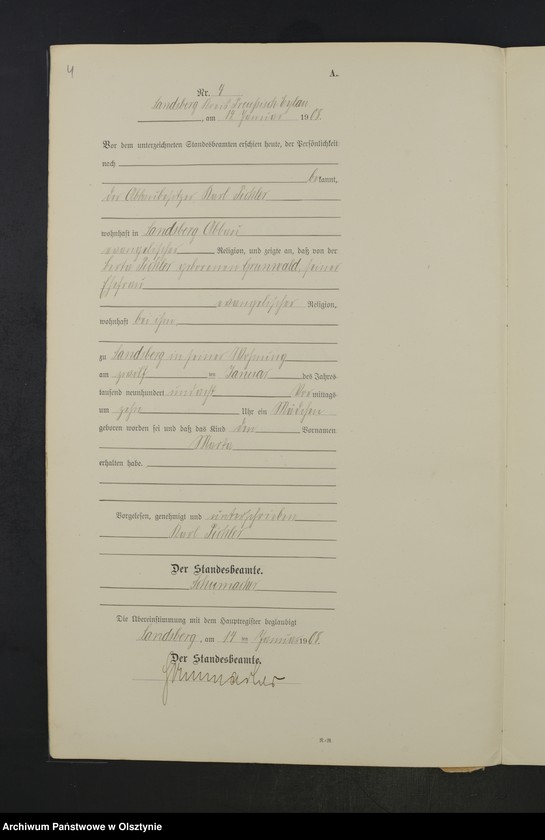 4
A.
Nr. 4
Landsberg Kreis Preußisch Eylau
am 19 Januar 1908.
Vor dem unterzeichneten Standesbeamten erschien heute, der Persönlichkeit
nach
bekannt,
der Abbaubesitzer Karl
wohnhaft in Landsberg Abbau
evangelischer Religion, und zeigte an, daß von der
geborenen Grunwald, seiner
Ehefrau
evangelischer Religion,
wohnhaft bei ihm
zu Landsberg in seiner Wohnung
am zwölf ten Januar des Jahres
tausend neunhundert und acht Vormittags
um zehn Uhr ein Mädchen
geboren worden sei und daß das Kind den Vornamen
Marta
erhalten habe.
Vorgelesen, genehmigt und unterschrieben
Karl
Der Standesbeamte.
Schumacher
Die Übereinstimmung mit dem Hauptregister beglaubigt
Landsberg, am 19 ten Januar 1908.
Der Standesbeamte.
Schumacher
Archiwum Państwowe w Olsztynie